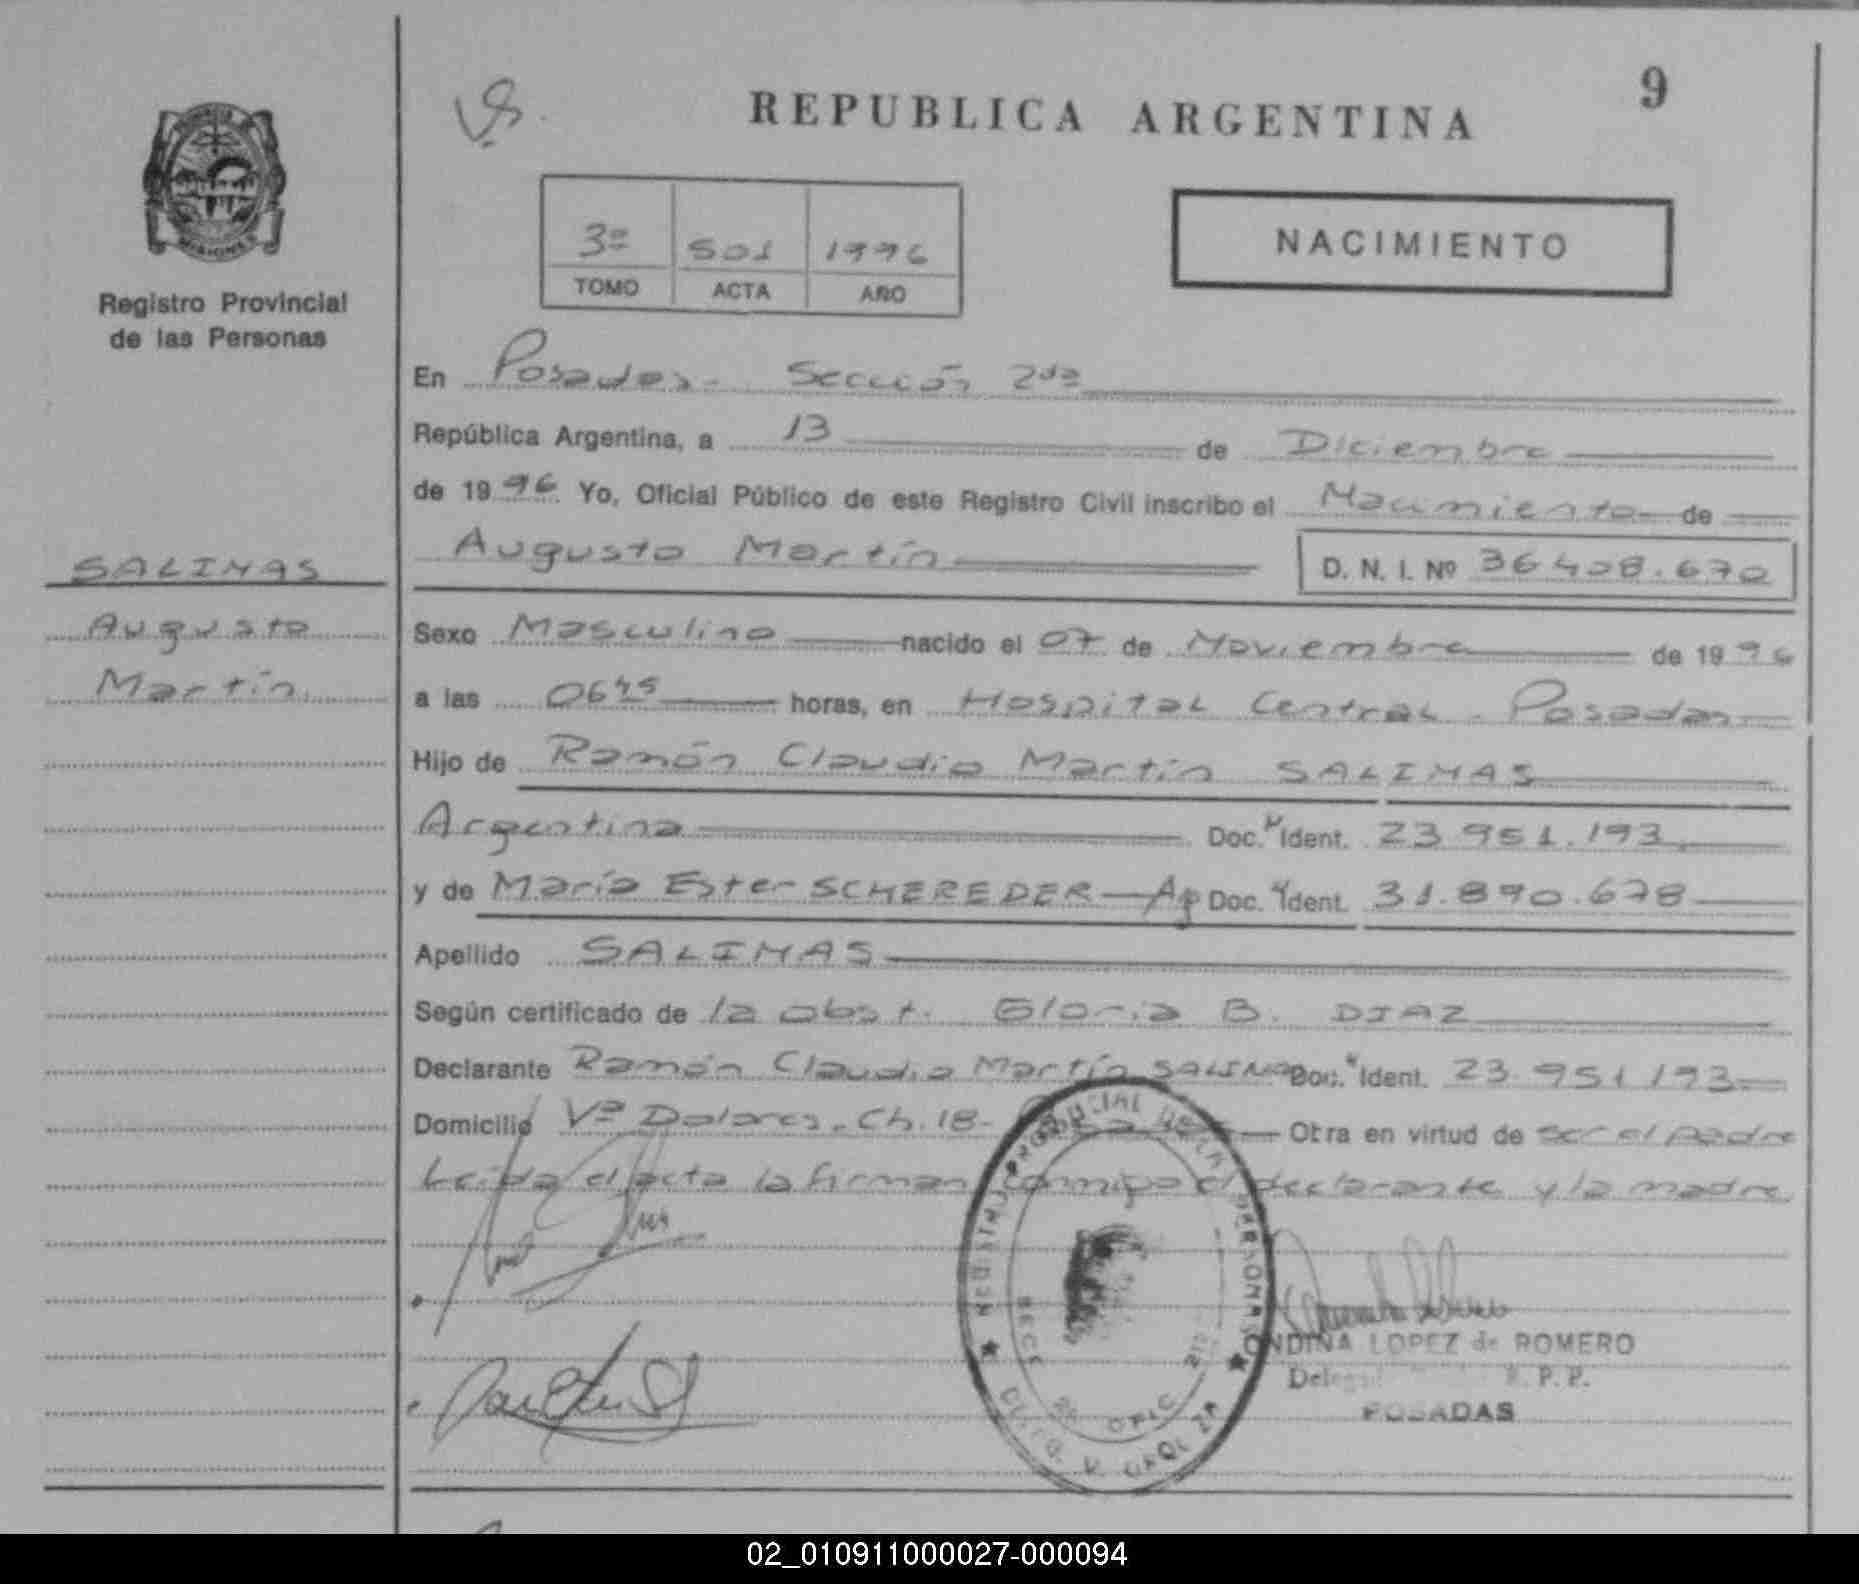 9
REPUBLICA ARGENTINA
MISIONES
Registro Provincial
de las Personas
3º 501 1996
TOMO ACTA AÑO
NACIMIENTO
En Posadas - Sección 2da
República Argentina, a 13 de Diciembre
de 1996 Yo, Oficial Público de este Registro Civil inscribo el Nacimiento de
Augusto Martín D. N. I. Nº 36408.670
SALINAS
Augusto
Martín
Sexo Masculino nacido el 07 de Noviembre de 1996
a las 0645 horas, en Hospital Central - Posadas
Hijo de Ramón Claudio Martín SALINAS
Argentina Doc. Ident. 23 951.193
y de María Ester SCHEREDER - Ag Doc. Ident. 31.890.678
Apellido SALINAS
Según certificado de la obst. Gloria B. DIAZ
Declarante Ramón Claudio Martín SALINAS Doc. Ident. 23.951193
Domicilio Vª Dolores. Ch. 18- Otra en virtud de ser el padre
Leída el acta la firman conmigo el declarante y la madre
REGISTRO PROVINCIAL DE LAS PERSONAS
ONDINA LOPEZ de ROMERO
R. P. P.
POSADAS
02_010911000027-000094